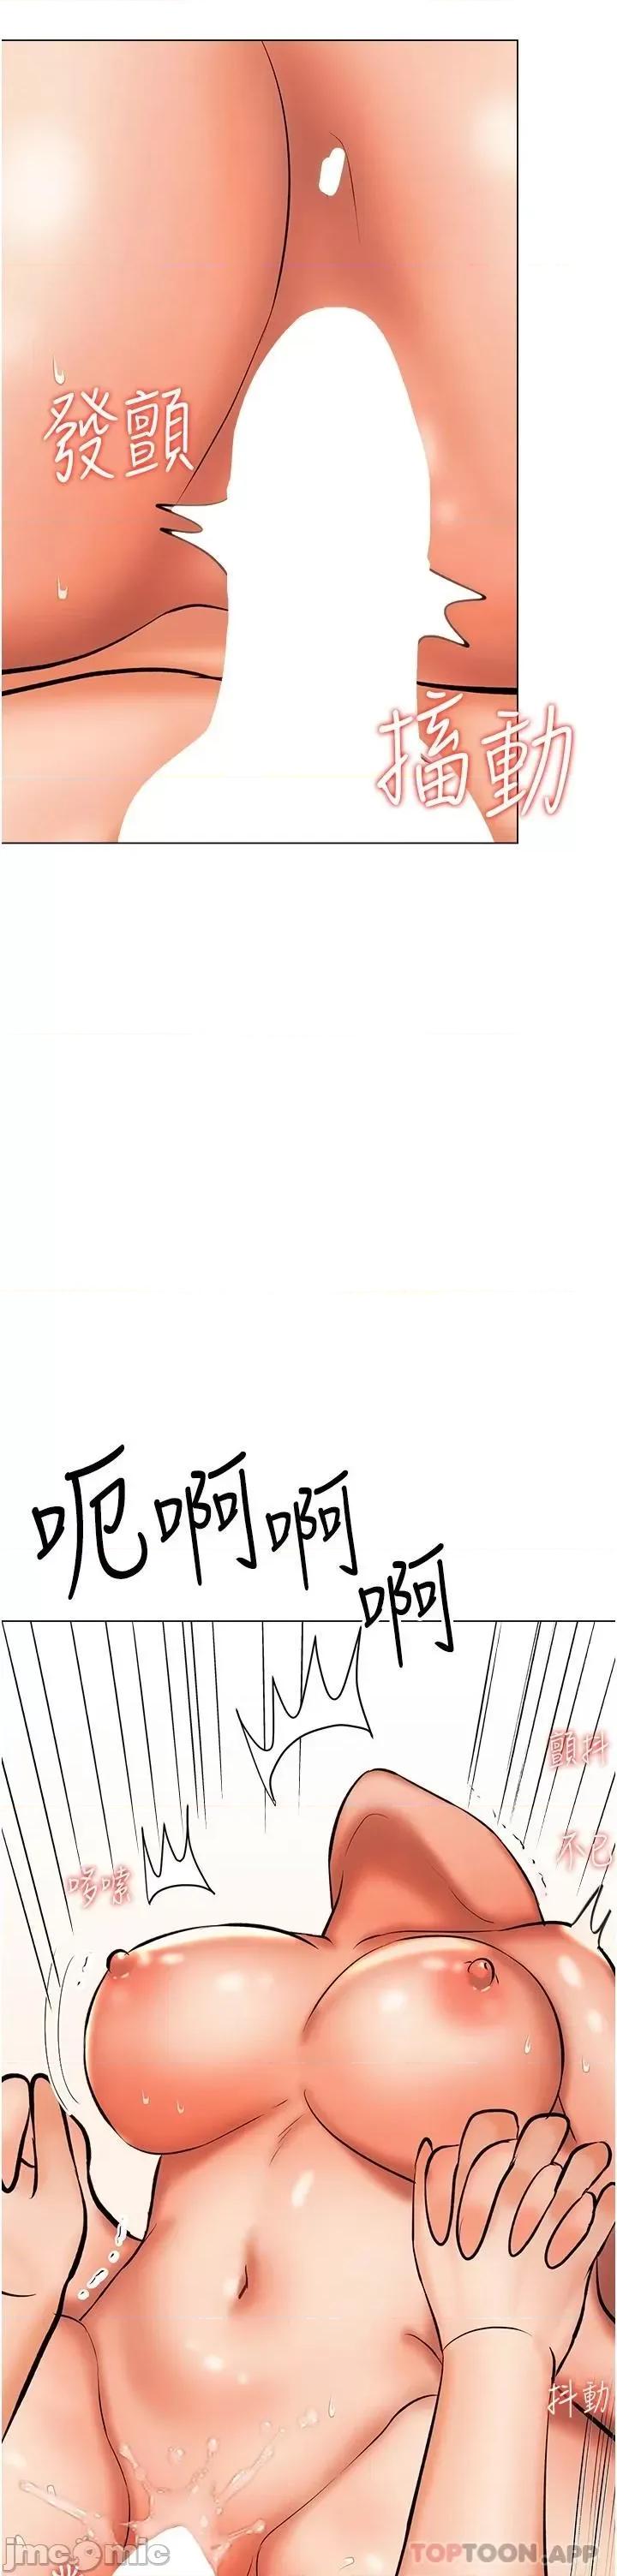 發顫
搐動
呃啊啊
啊
顫抖
不已
哆嗦
抖動
jmcomic
TOPTOON.APP